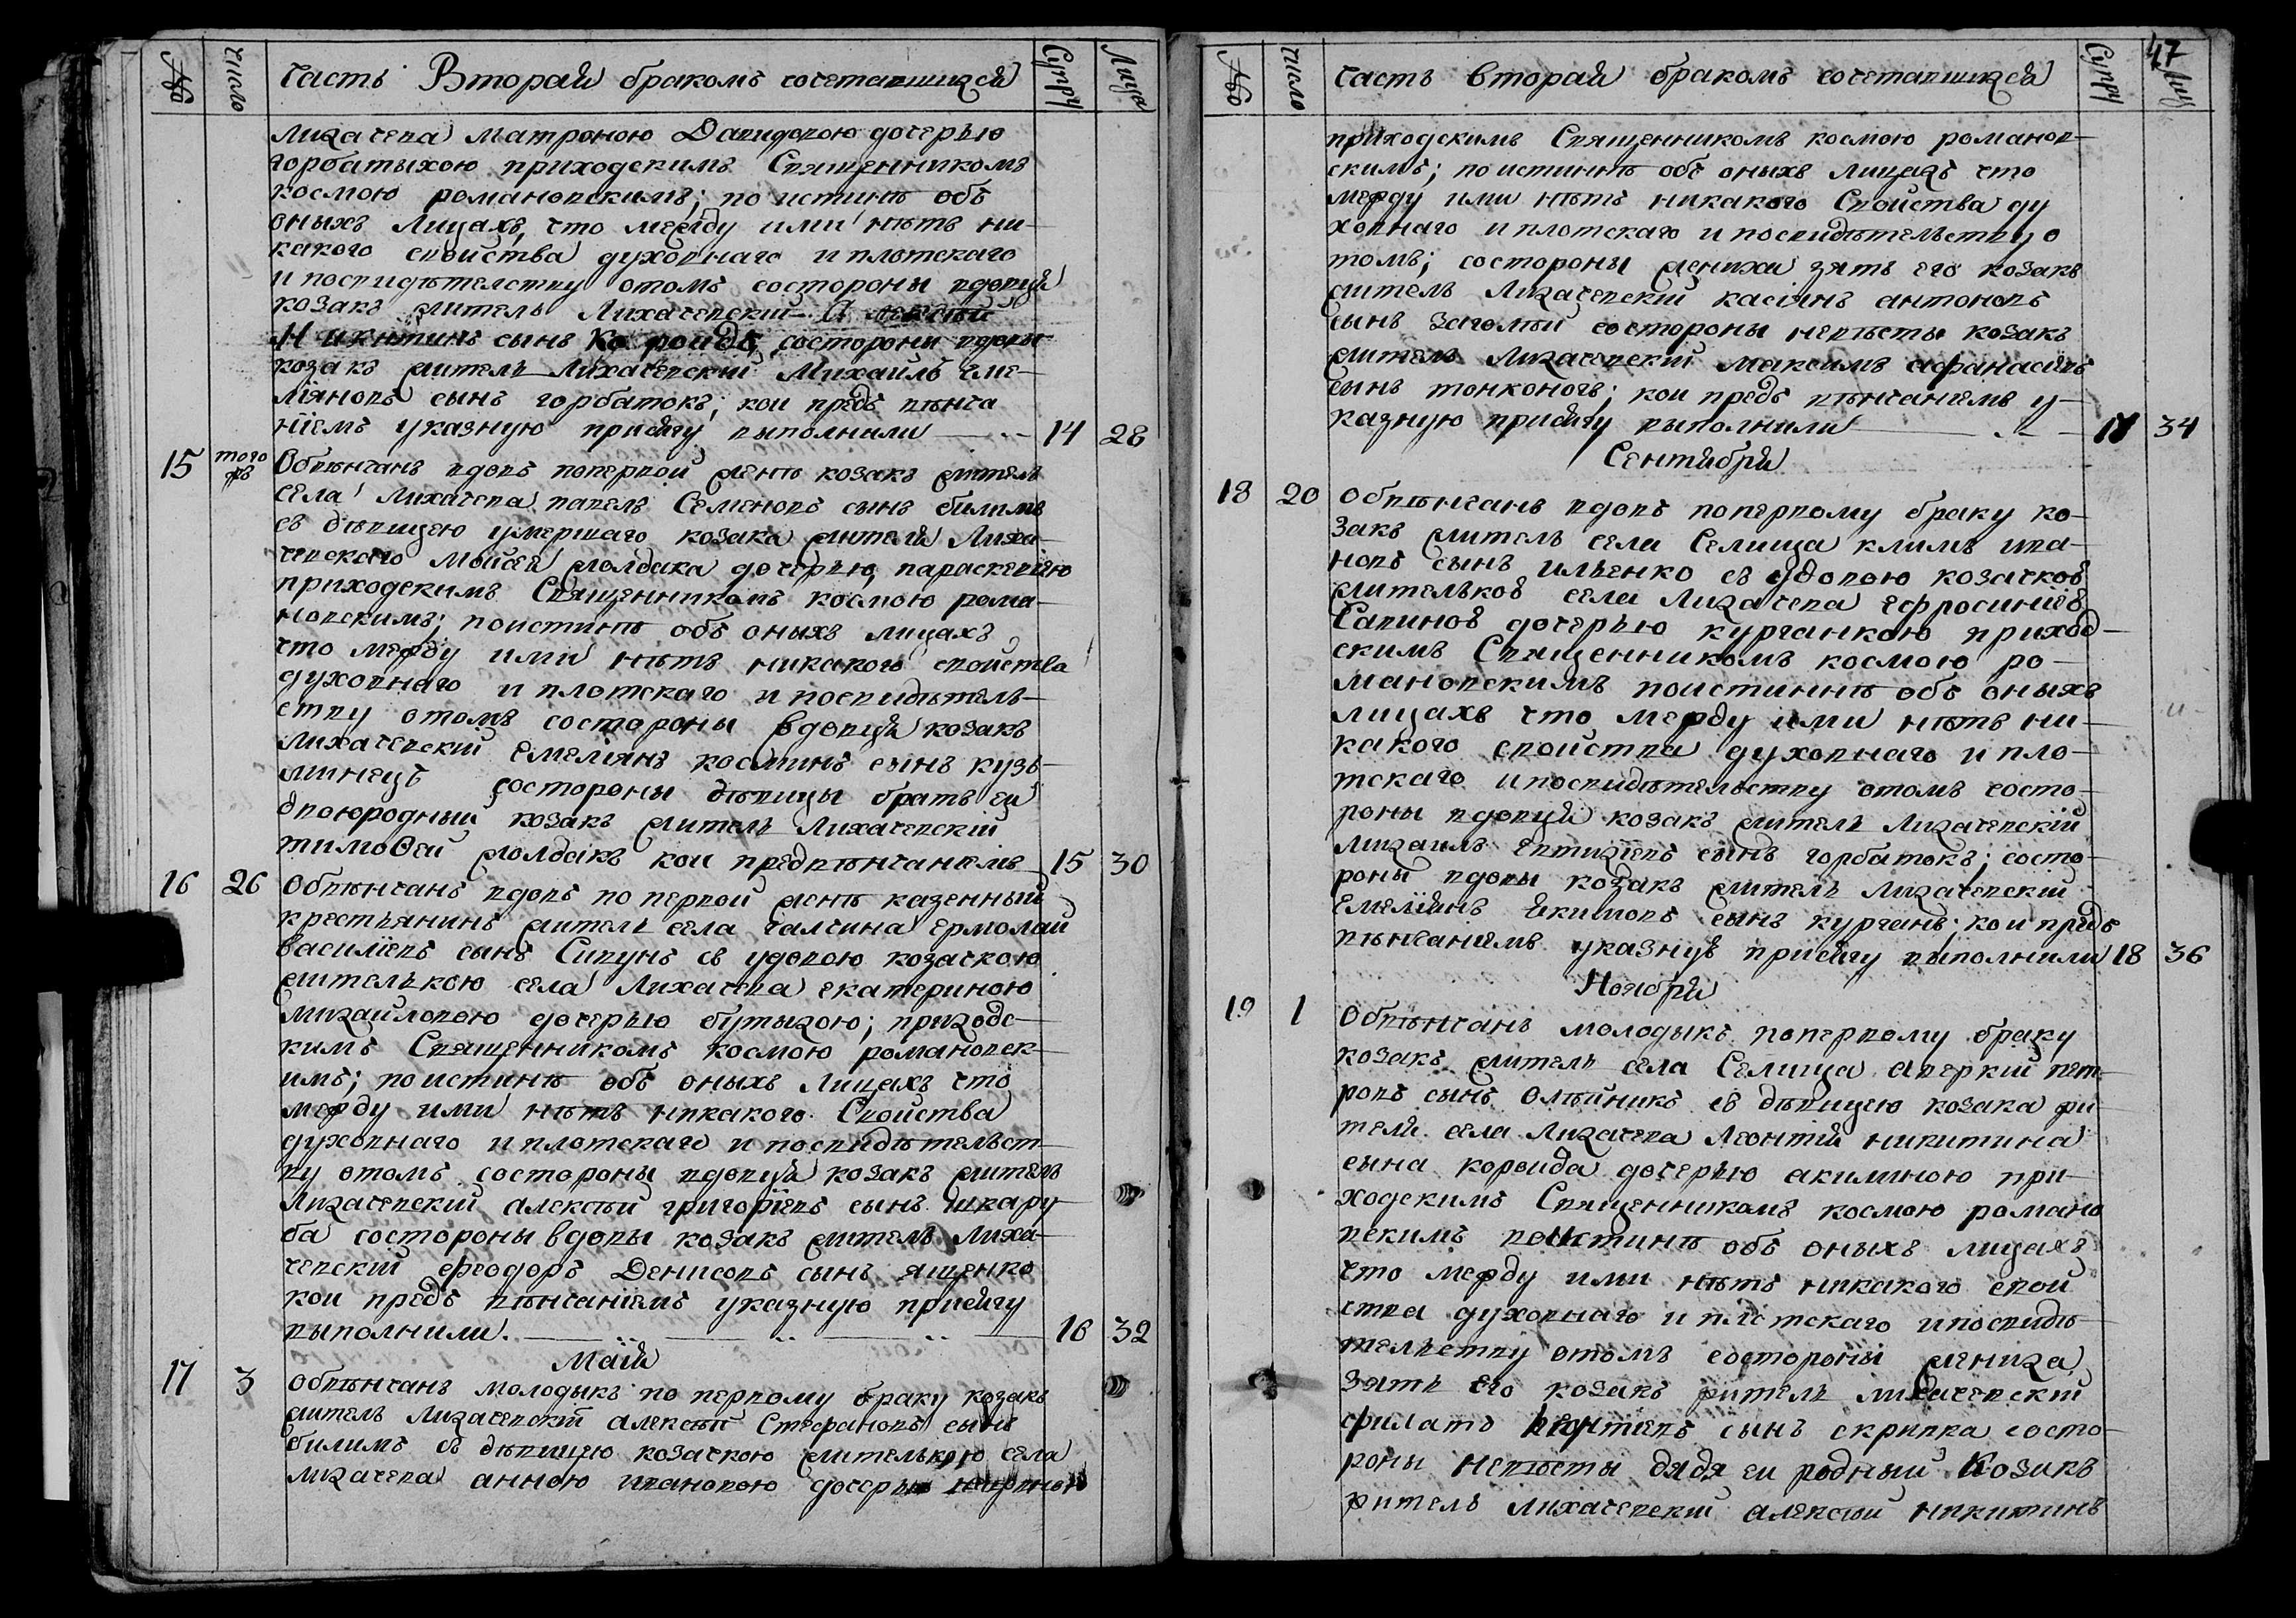 №
число
часть Вторая бракомъ сочетавшихся
Супру
Лица
лихачева матроною Давидовою дочерью
горбатыхою приходскимъ Священникомъ
космою романовскимъ; по истиннѣ объ
оныхъ Лицахъ, что между ими нѣтъ ни-
какого свойства духовнаго и плотскаго
и посвидѣтелству отомъ состороны вдовця
козакъ житель Лихачевский Алексѣй
Никитинъ сынъ Коровидъ, состороны вдовы
козакъ житель Лихачевский Михаилъ Еме-
ліяновъ сынъ горбатокъ; кои предъ вѣнча
ніемъ указную присягу выполнили 14 28
15 того жъ Обвѣнчанъ вдовъ попервой женѣ козакъ житель
села Лихачева павелъ Семеновъ сынъ билимъ
съ дѣвицею умершаго козака жителя Лиха-
чевского Мойсея жолдака дочерью, параскевіею
приходскимъ Священникомъ космою рома-
новскимъ; поистиннѣ объ оныхъ лицахъ
что между ими нѣтъ никакого свойства
духовнаго и плотскаго и посвидѣтель-
ству отомъ состороны вдовця козакъ
лихачевский Емеліянъ косминъ сынъ кузь-
минецъ состороны дѣвицы братъ ея
двоюродный козакъ житель Лихачевский
тимоѳей жолдакъ кои предвѣнчаніемъ 15 30
16 26 Обвѣнчанъ вдовъ по первой женѣ казенный
крестьянинъ житель села галчина Ермолай
василіевъ сынъ Сипунъ съ удовою козачкою
жителькою села Лихачева екатериною
михайловою дочерью бутыхою; приходс-
кимъ Священникомъ космою романовск-
имъ; по истиннѣ объ оныхъ Лицахъ что
между ими нѣтъ никакого Свойства
духовнаго и плотскаго и посвидѣтельст
ву отомъ состороны вдовця козакъ житель
Лихачевский алексѣй григоріевъ сынъ шкару
ба состороны вдовы козакъ житель Лиха-
чевский феодоръ Денисовъ сынъ ященко
кои предъ вѣнчаніемъ указную присягу
выполнили. 16 32
Маія
17 3 обвѣнчанъ молодыкъ по первому браку козакъ
житель Лихачевский алексѣй Стефановъ сынъ
билимъ съ дѣвицею козачкою жителькою села
лихачева анною ивановою дочерью
№
число
часть вторая бракомъ сочетавшихся
Супру
47
Лиц
приходскимъ Священникомъ космою романов-
скимъ; поистиннѣ объ оныхъ лицахъ что
между ими нѣтъ никакого Свойства ду
ховнаго и плотскаго и посвидѣтельству о
томъ; состороны жениха зять его козакъ
житель Лихачевский касіянъ антоновъ
сынъ состороны невѣсты козакъ
житель лихачевский максимъ афанасіевъ
сынъ тонконогъ; кои предъ вѣнчаніемъ у-
казную присягу выполнили 17 34
Сентября
18 20 обвѣнчанъ вдовъ попервому браку ко-
закъ житель села Селища климъ ива-
новъ сынъ ильенко съ удовою козачков
жительков села Лихачева ефросиніев
Савинов дочерью курганкою приход-
скимъ Священникомъ космою ро-
мановскимъ поистиннѣ объ оныхъ
лицахъ что между ими нѣтъ ни-
какого свойства духовнаго и пло-
тскаго и посвидѣтельству отомъ состо-
роны вдовця козакъ житель Лихачевский
михаилъ Евтихіевъ сынъ горбатокъ; состо-
роны вдовы козакъ житель лихачевский
Емеліянъ Екимовъ сынъ курганъ; кои предъ
вѣнчаніемъ указнув присягу выполнили 18 36
Ноября
19 1 Обвѣнчанъ молодыкъ попервому браку
козакъ житель села Селища аверкій пет-
ровъ сынъ Олѣйникъ съ дѣвицею козака жи
теля села лихачева Леонтія никитина
сына коровида дочерью акилиною при-
ходскимъ Священникомъ космою романо
вскимъ поистиннѣ объ оныхъ лицахъ
что между ими нѣтъ никакого свой
ства духовнаго и плотскаго ипосвидѣ-
тельству отомъ состороны жениха
зять его козакъ житель лихачевский
филатъ сынъ скрипка состо-
роны невѣсты дядя еи родный Козакъ
житель лихачевский алексѣй никитинъ